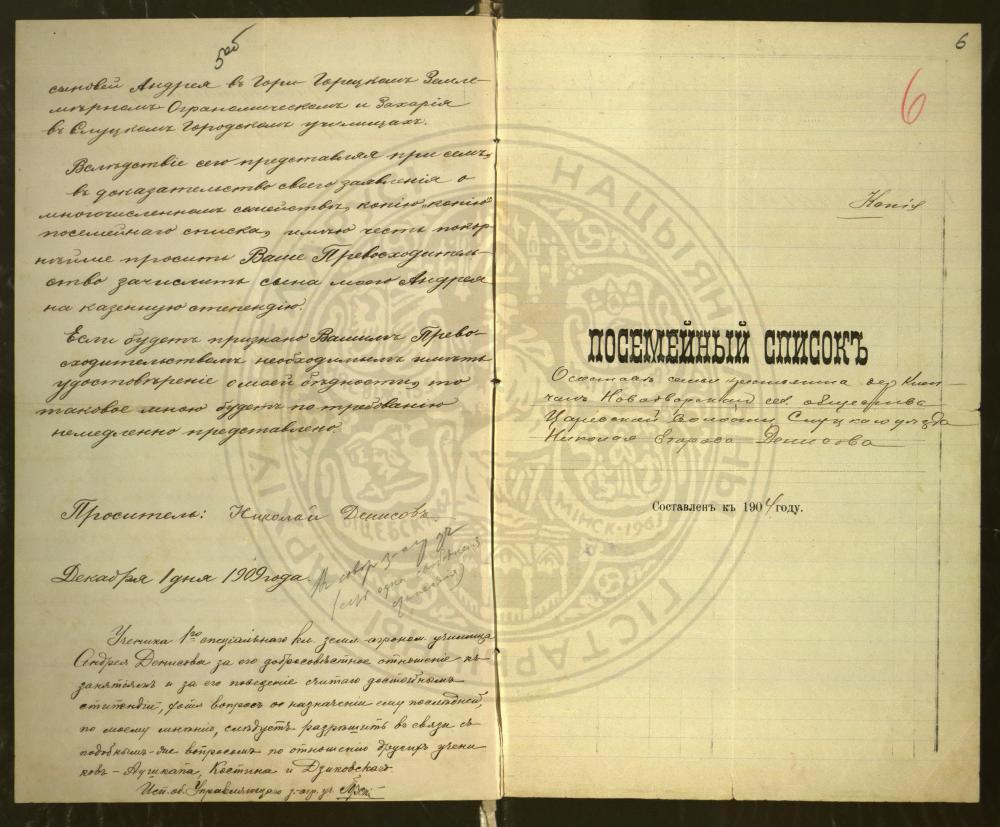 5об
сыновей Андрея въ Горы-Горецкомъ Земле-
мѣрномъ Огрономическомъ и Захарія
въ Слуцкомъ Городскомъ училищахъ.
Вслѣдствіе сего представляя при семъ,
въ доказательство своего заявленія о
многочисленномъ семействѣ, копію „копію“
посемейнаго списка, имѣю честь покор-
нѣйше просить Ваше Превосходитель-
ство зачислить сына моего Андрея
на казенную степендію.
Если будетъ признано Вашимъ Прево-
сходительствомъ необходимымъ имѣть
удостовѣреніе о моей бѣдности, то
таковое мною будетъ по требованію
немедленно представлено
Проситель: Николай Денисовъ
Декабря 1 дня 1909 года.
Ученика 1го спеціальнаго кл. земл.-агроном. училища
Андрея Денисова за его добросовѣстное отношеніе къ
занятіямъ и за его поведеніе считаю достойнымъ
стипендіи, хотя вопросъ о назначеніи ему послѣдней,
по моему мнѣнію, слѣдуетъ разрѣшить въ связи съ
подобнымъ-же вопросомъ по отношенію другихъ учени-
ковъ – Костина и Дзиковскаго.
Исп. об. Управляющаго з.-агр. уч.
6
6
Копія
ПОСЕМЕЙНЫЙ СПИСОКЪ
О составѣ семьи крестьянина дер.
Новодворскаго сел. общества
Царевской волости Слуцкаго уѣзда
Николая Егорова Денисова
Составленъ къ 190 году.
НАЦЫЯНАЛЬНЫ ГІСТАРЫЧНЫ АРХІЎ
МІНСК